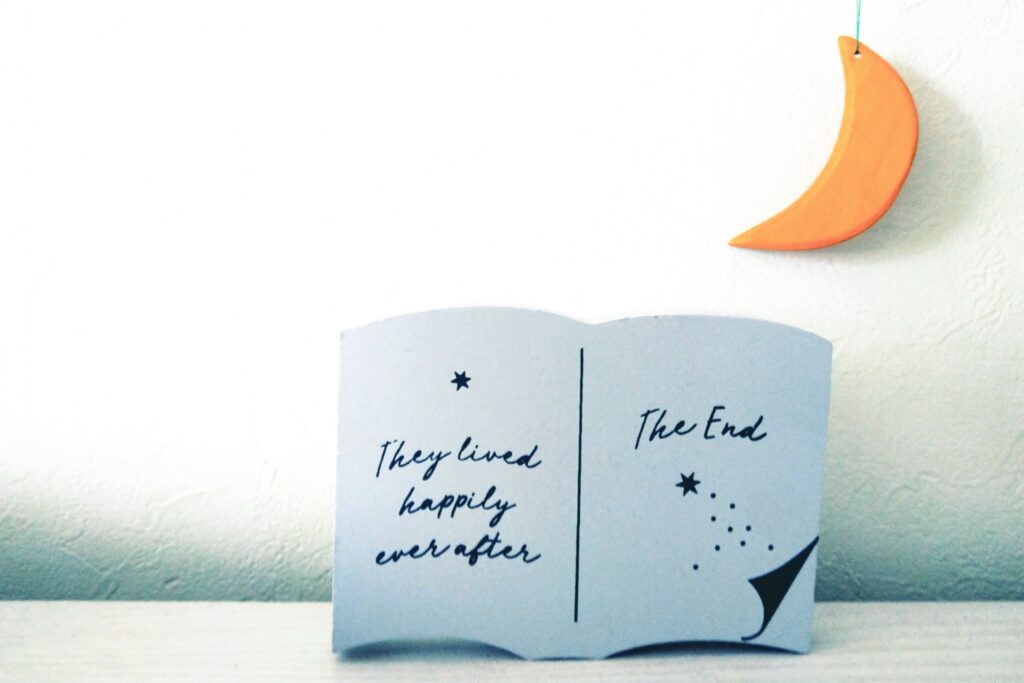 They lived
happily
ever after
The End